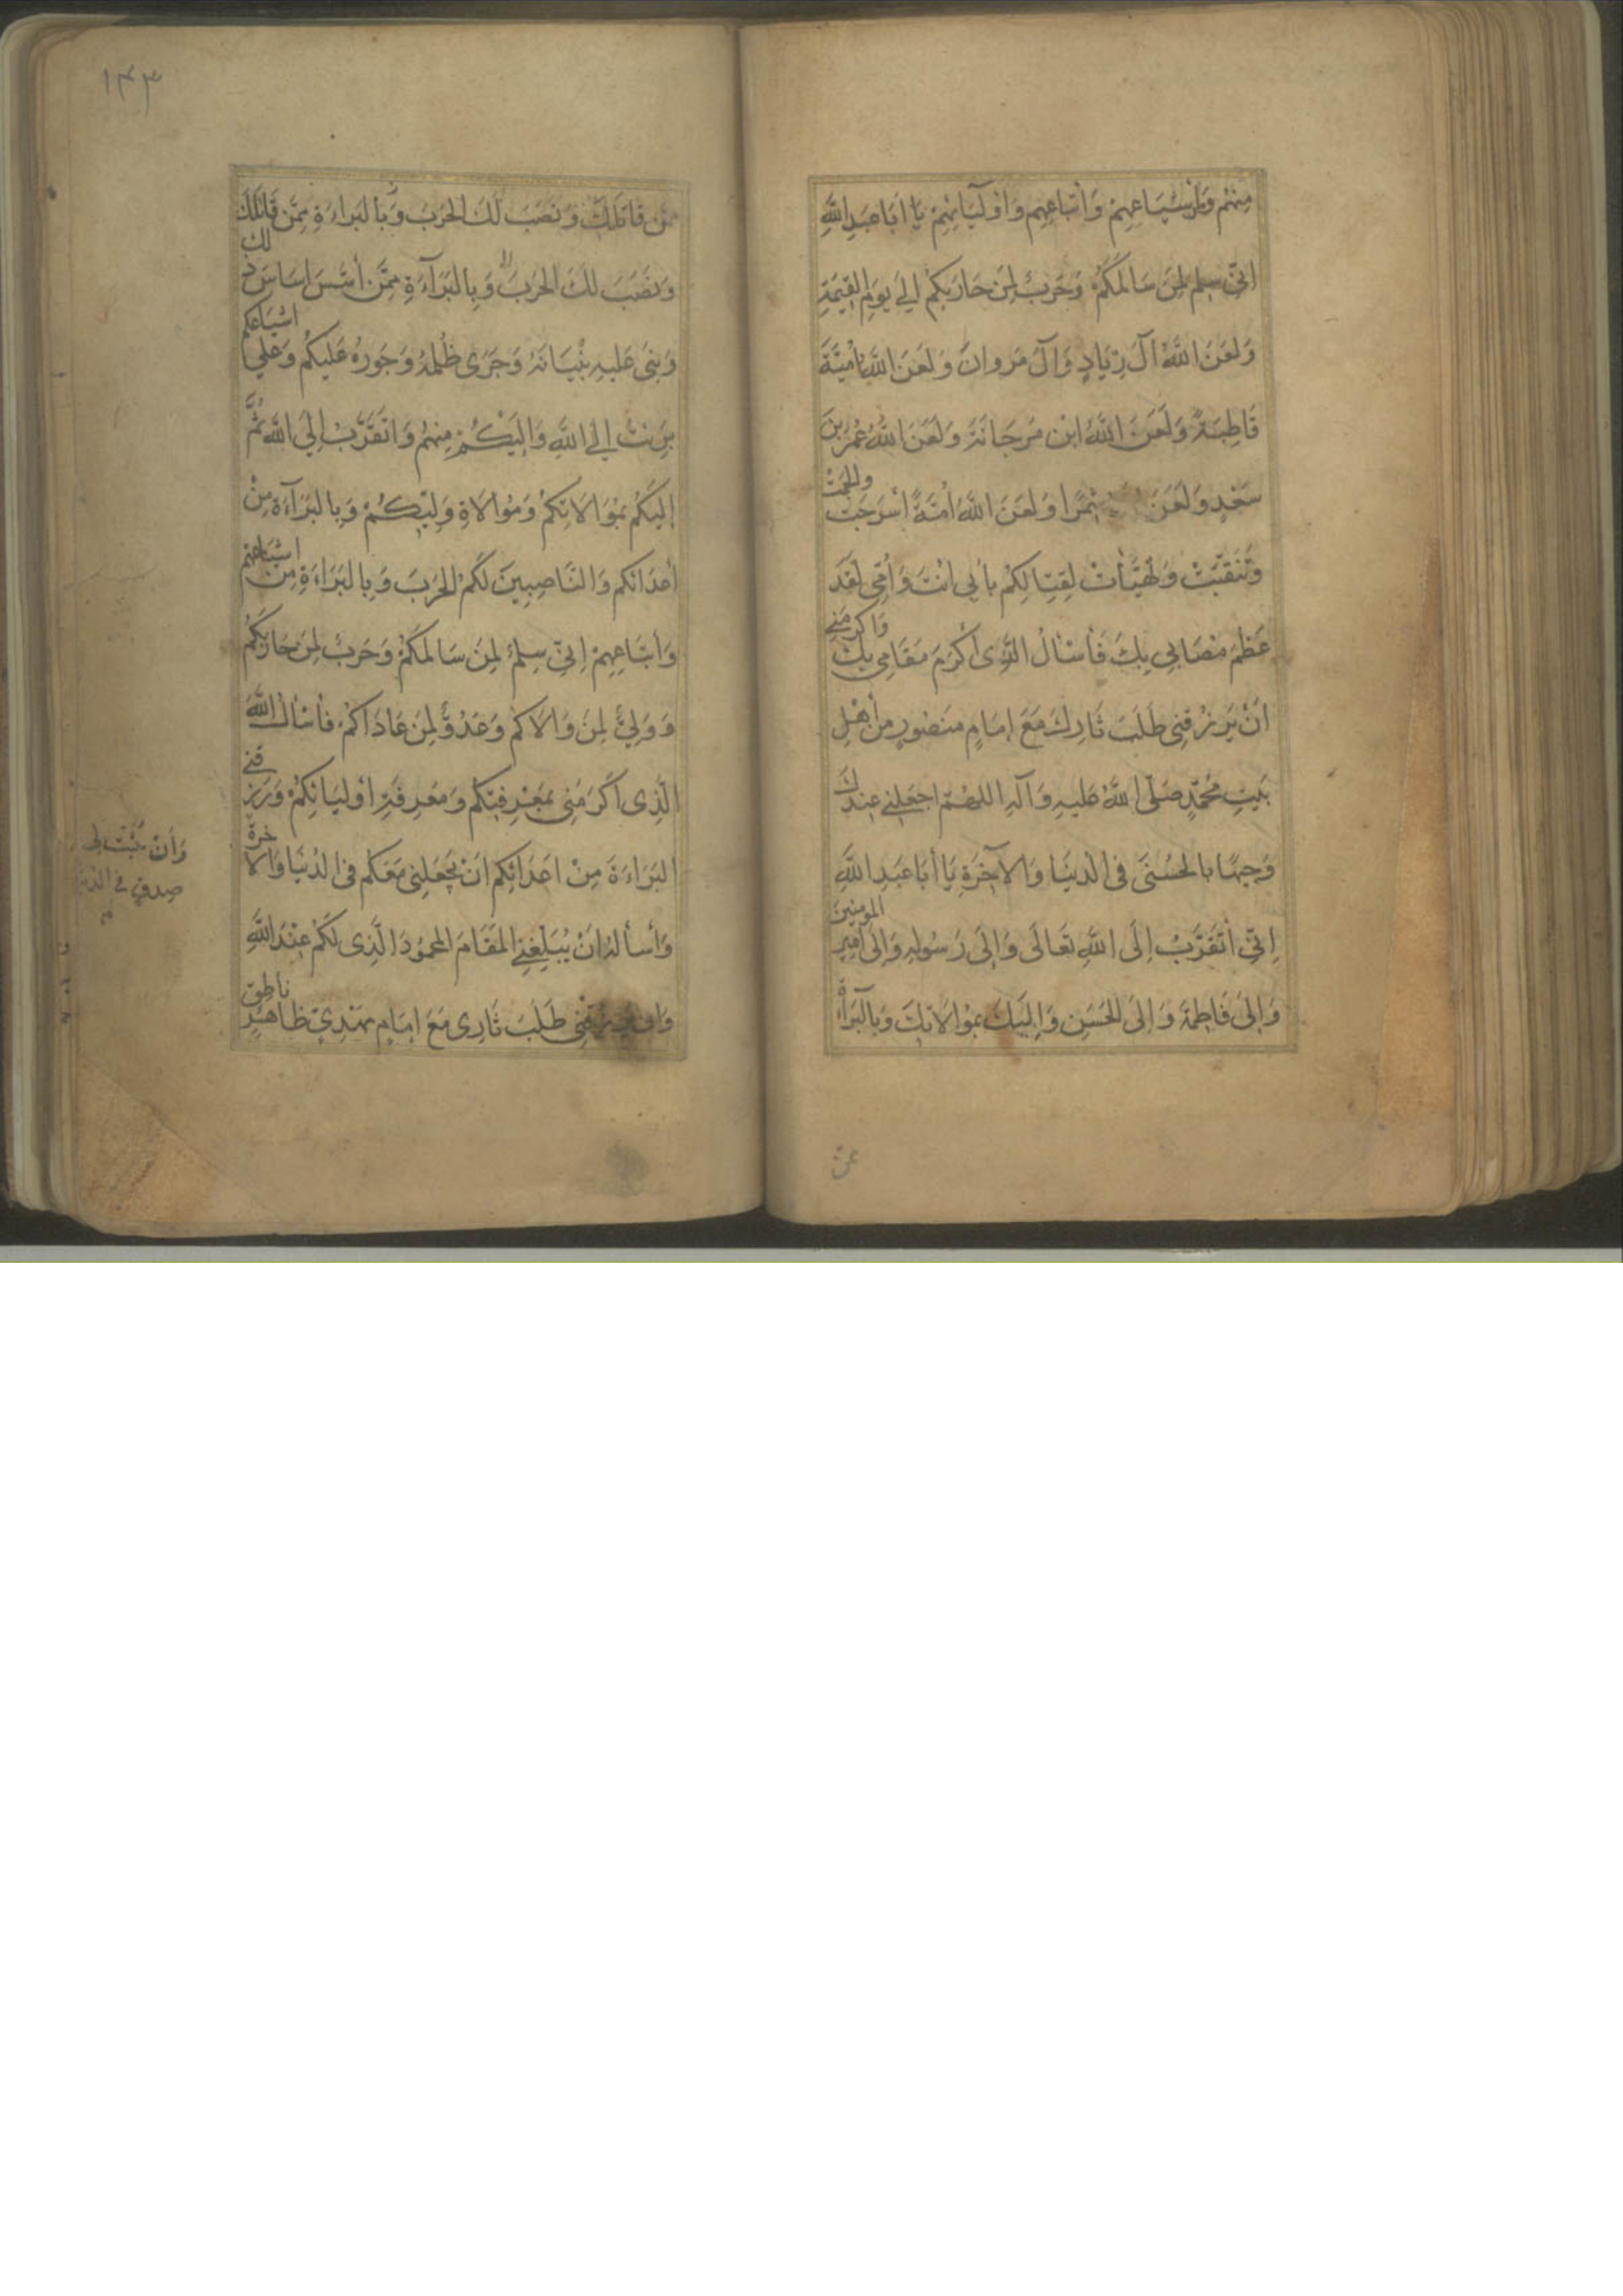 مِنْهُمْ وَمِنْ اَشْيَاعِهِمْ وَأَتْبَاعِهِمْ وَاَوْلِيَائِهِمْ يَا اَبَا عَبْدِ اللهِ
اِنِّي سِلْمٌ لِمَنْ سَالَمَكُمْ وَحَرْبٌ لِمَنْ حَارَبَكُمْ اِلَى يَوْمِ الْقِيمَةِ
وَلَعَنَ اللهُ آلَ زِيَادٍ وَآلَ مَرْوَانَ وَلَعَنَ اللهُ بَنِي اُمَيَّةَ
قَاطِبَةً وَلَعَنَ اللهُ ابْنَ مَرْجَانَةَ وَلَعَنَ اللهُ عُمَرَ بْنَ
سَعْدٍ وَلَعَنَ شِمْرًا وَلَعَنَ اللهُ اُمَّةً أَسْرَجَتْ وَالْجَمَتْ
وَتَنَقَّبَتْ وَتَهَيَّأَتْ لِقِتَالِكُمْ بِأَبِي اَنْتَ وَاُمِّي لَقَدْ
عَظُمَ مُصَابِي بِكَ فَأَسْأَلُ الَّذِي أَكْرَمَ مَقَامِي بِكَ وَاكْرَمَنِي
اَنْ يَرْزُقَنِي طَلَبَ ثَارِكَ مَعَ اِمَامٍ مَنْصُورٍ مِنْ أَهْلِ
بَيْتِ مُحَمَّدٍ صَلَّى اللهُ عَلَيْهِ وَآلِهِ اللهُمَّ اجْعَلْنِي عِنْدَكَ
وَجِيهًا بِالْحُسَيْنِ فِي الدُّنْيَا وَالآخِرَةِ يَا أَبَا عَبْدِ اللهِ
اِنِّي اَتَقَرَّبُ اِلَى اللهِ تَعَالَى وَاِلَى رَسُولِهِ وَاِلَى اَمِيرِ الْمُومِنِينَ
وَاِلَى فَاطِمَةَ وَاِلَى الْحَسَنِ وَاِلَيْكَ بِمُوَالَاتِكَ وَبِالْبَرَآءَةِ
ممن
١٤٣
مِمَّنْ قَاتَلَكَ وَنَصَبَ لَكَ الْحَرْبَ وَبِالْبَرَاءَةِ مِمَّنْ قَاتَلَكَ
وَنَصَبَ لَكَ الْحَرْبَ وَبِالْبَرَآءَةِ مِمَّنْ أَسَّسَ اَسَاسَ ذلِكَ
وَبَنَى عَلَيْهِ بُنْيَانَهُ وَجَرَى ظُلْمُهُ وَجَوْرُهُ عَلَيْكُمْ وَعَلَى اَشْيَاعِكُمْ
بَرِئْتُ اِلَى اللهِ وَاِلَيْكُمْ مِنْهُمْ وَاَتَقَرَّبُ اِلَى اللهِ ثُمَّ
اِلَيْكُمْ بِمُوَالَاتِكُمْ وَمُوَالَاةِ وَلِيِّكُمْ وَبِالْبَرَآءَةِ مِنْ
أَعْدَائِكُمْ وَالنَّاصِبِينَ لَكُمُ الْحَرْبَ وَبِالْبَرَاءَةِ مِنْ اَشْيَاعِهِمْ
وَأَتْبَاعِهِمْ اِنِّي سِلْمٌ لِمَنْ سَالَمَكُمْ وَحَرْبٌ لِمَنْ حَارَبَكُمْ
وَوَلِيٌّ لِمَنْ وَالَاكُمْ وَعَدُوٌّ لِمَنْ عَادَاكُمْ فَأَسْأَلُ اللهَ
الَّذِي اَكْرَمَنِي بِمَعْرِفَتِكُمْ وَمَعْرِفَةِ اَوْلِيَائِكُمْ وَرَزَقَنِي
الْبَرَاءَةَ مِنْ اَعْدَائِكُمْ اَنْ يَجْعَلَنِي مَعَكُمْ فِي الدُّنْيَا وَالآخِرَةِ
وَأَسْأَلُهُ اَنْ يُبَلِّغَنِي الْمَقَامَ الْمَحْمُودَ الَّذِي لَكُمْ عِنْدَ اللهِ
وَاَنْ يَرْزُقَنِي طَلَبَ ثَارِي مَعَ اِمَامٍ مَهْدِيٍّ ظَاهِرٍ نَاطِقٍ
وَاَنْ يُثَبِّتَ لِي
صِدْقٍ فِي الدُّنْيَا